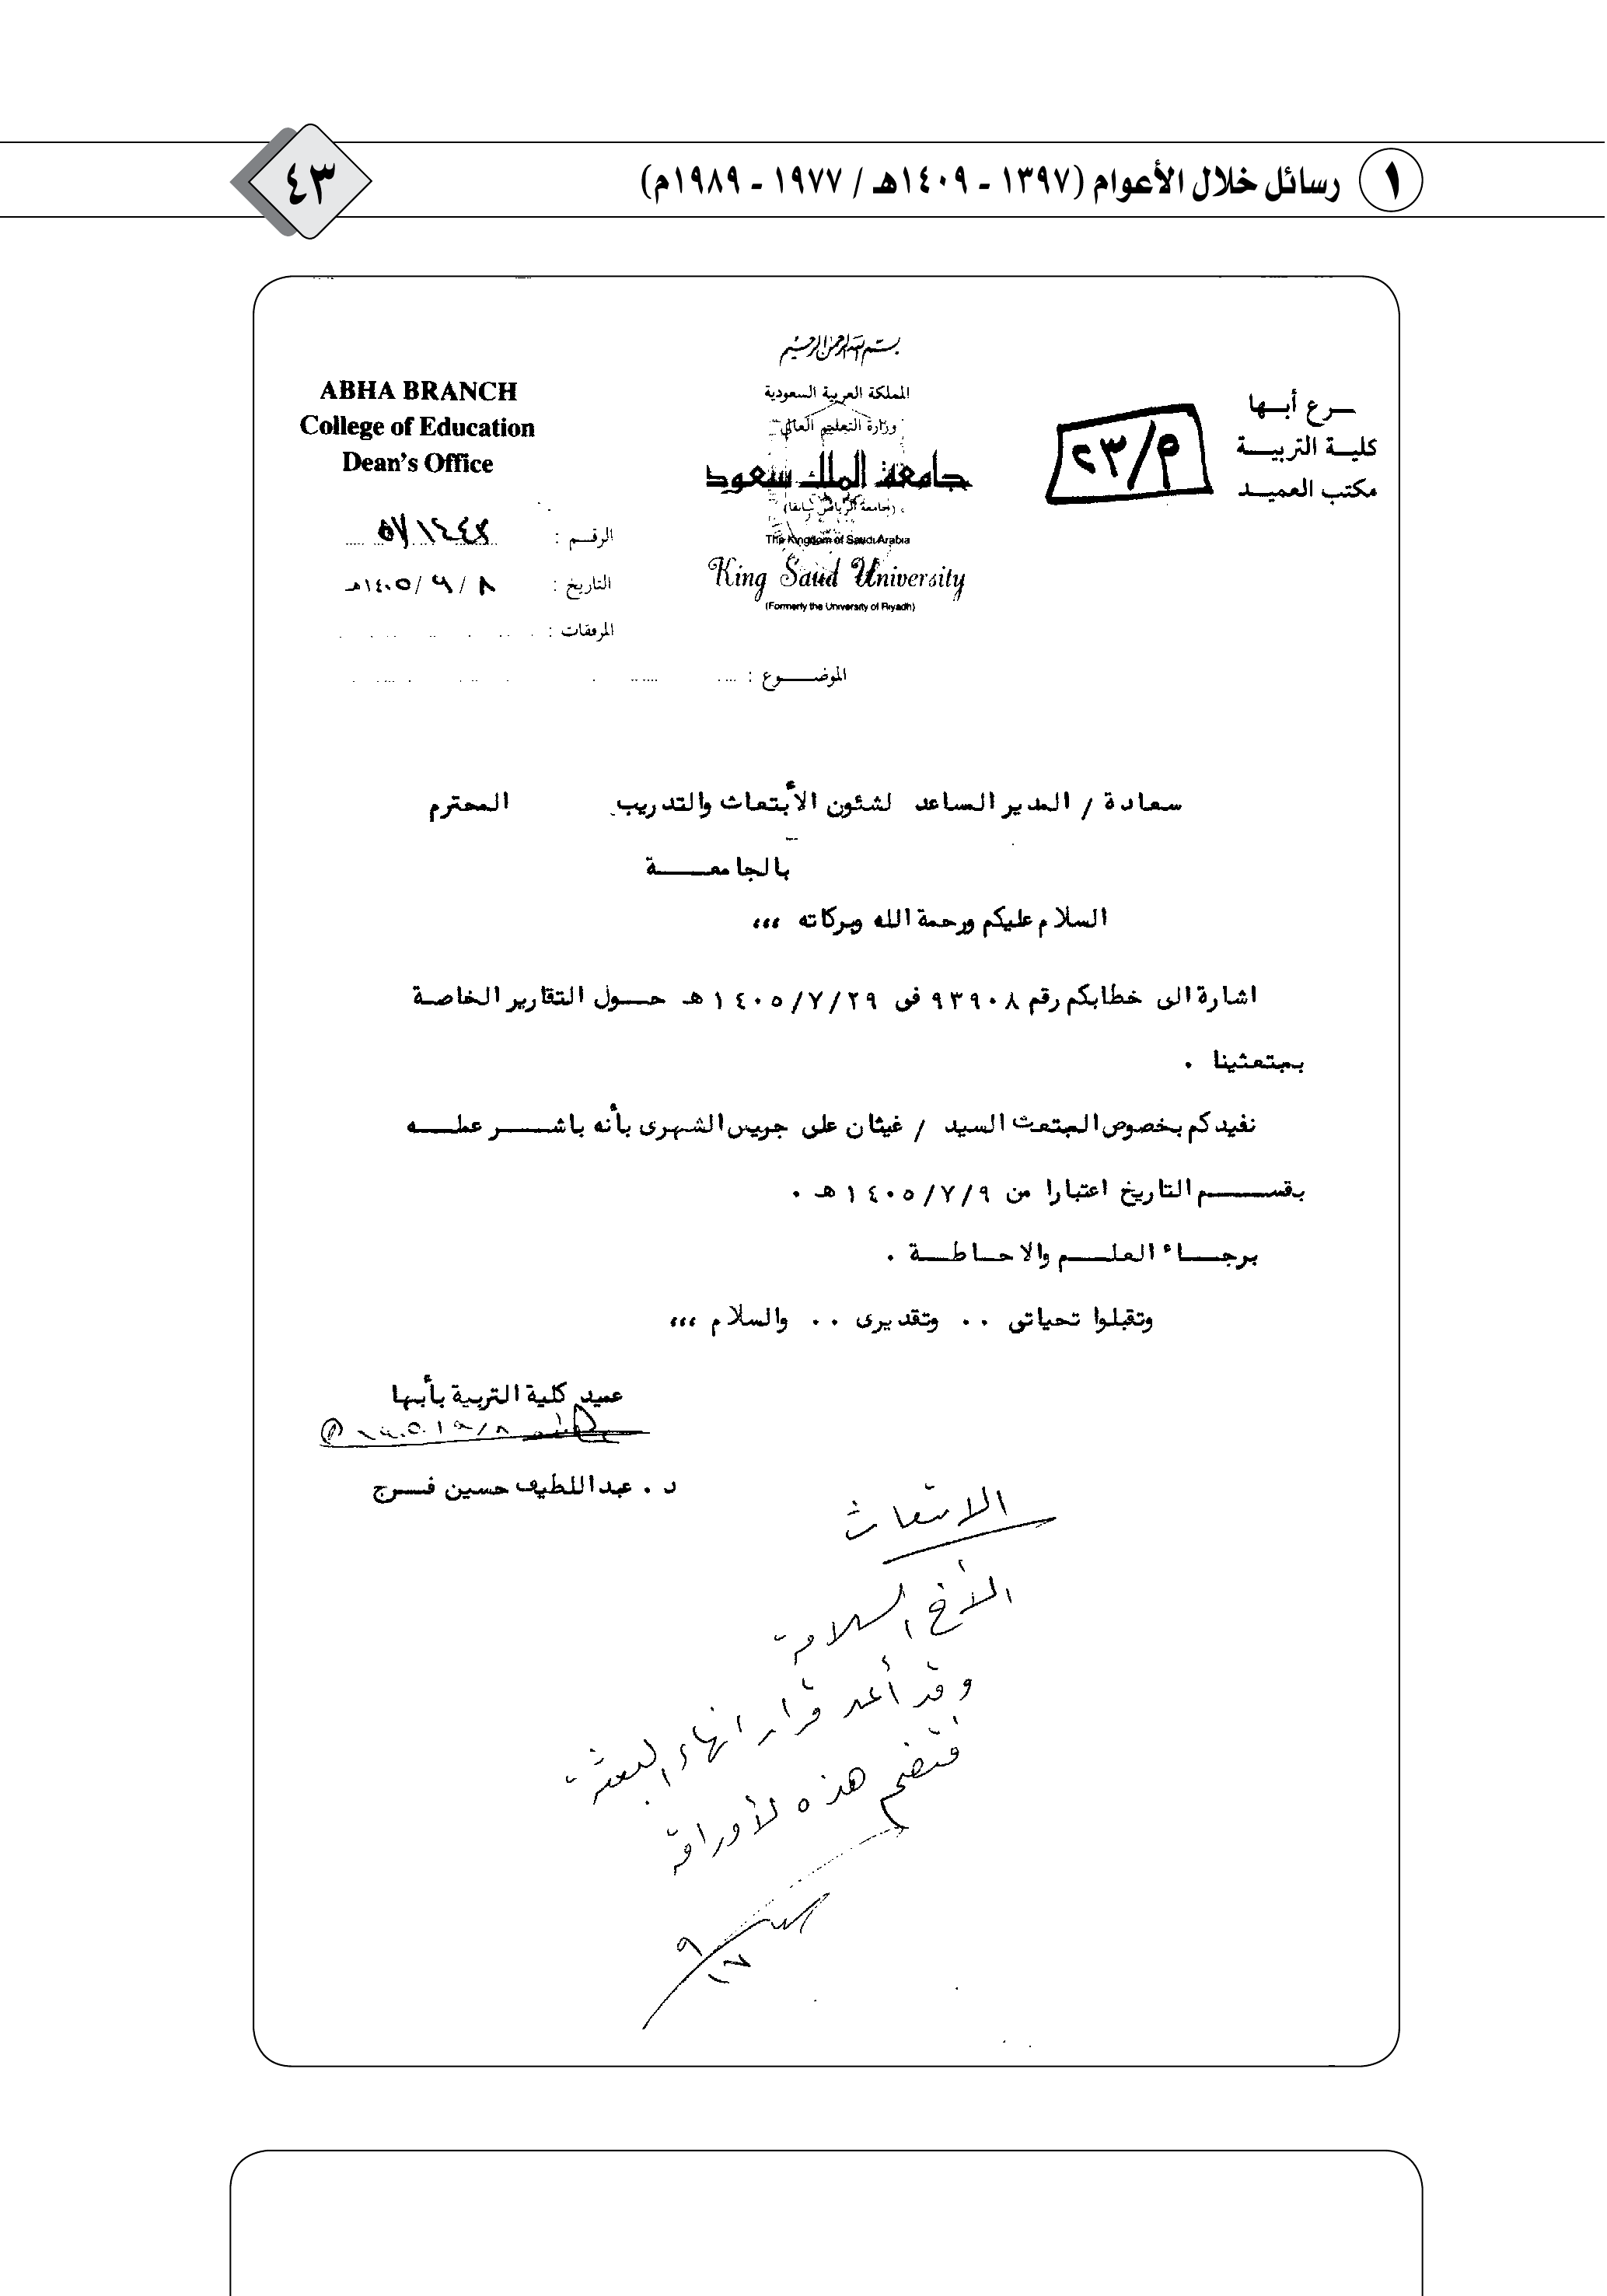 ١ رسائل خلال الأعوام (١٣٩٧ - ١٤٠٩هـ / ١٩٧٧ - ١٩٨٩م)
٤٣
بسم الله الرحمن الرحيم
المملكة العربية السعودية
وزارة التعليم العالي
جامعة الملك سعود
(جامعة الرياض سابقا)
The Kingdom of Saudi Arabia
King Saud University
(Formerly the University of Riyadh)
ـرع أبـها
كليـة التربيـــة
مكتب العميـد
م/٢٣
ABHA BRANCH
College of Education
Dean's Office
الرقـم :
التاريخ : ٨ / ٩ / ١٤٠٥هـ
المرفقات :
الموضــوع :
سعادة / المدير الساعد لشئون الأبتعاث والتدريب المحترم
بالجامعــــة
السلام عليكم ورحمة الله وبركاته ،،،
اشارة الى خطابكم رقم ٩٣٩٠٨ فى ١٤٠٥/٧/٢٩ هـ حــول التقارير الخاصـة
بمبتعثينا .
نفيدكم بخصوص المبتعث السيد / غيثان على جريس الشهرى بأنه باشــــر عملـــه
بقســـم التاريخ اعتبارا من ١٤٠٥/٧/٩ هـ .
برجـــاء العلـــم والاحـاطـــة .
وتقبلوا تحياتى .. وتقديرى .. والسلام ،،،
عميد كلية التربية بأبها
د . عبداللطيف حسين فــرج
الابتعاث
الأخ السلامة
وقد أعد قرار انهاء البعثة
فتضم هذه لأوراقه
٩
١٧